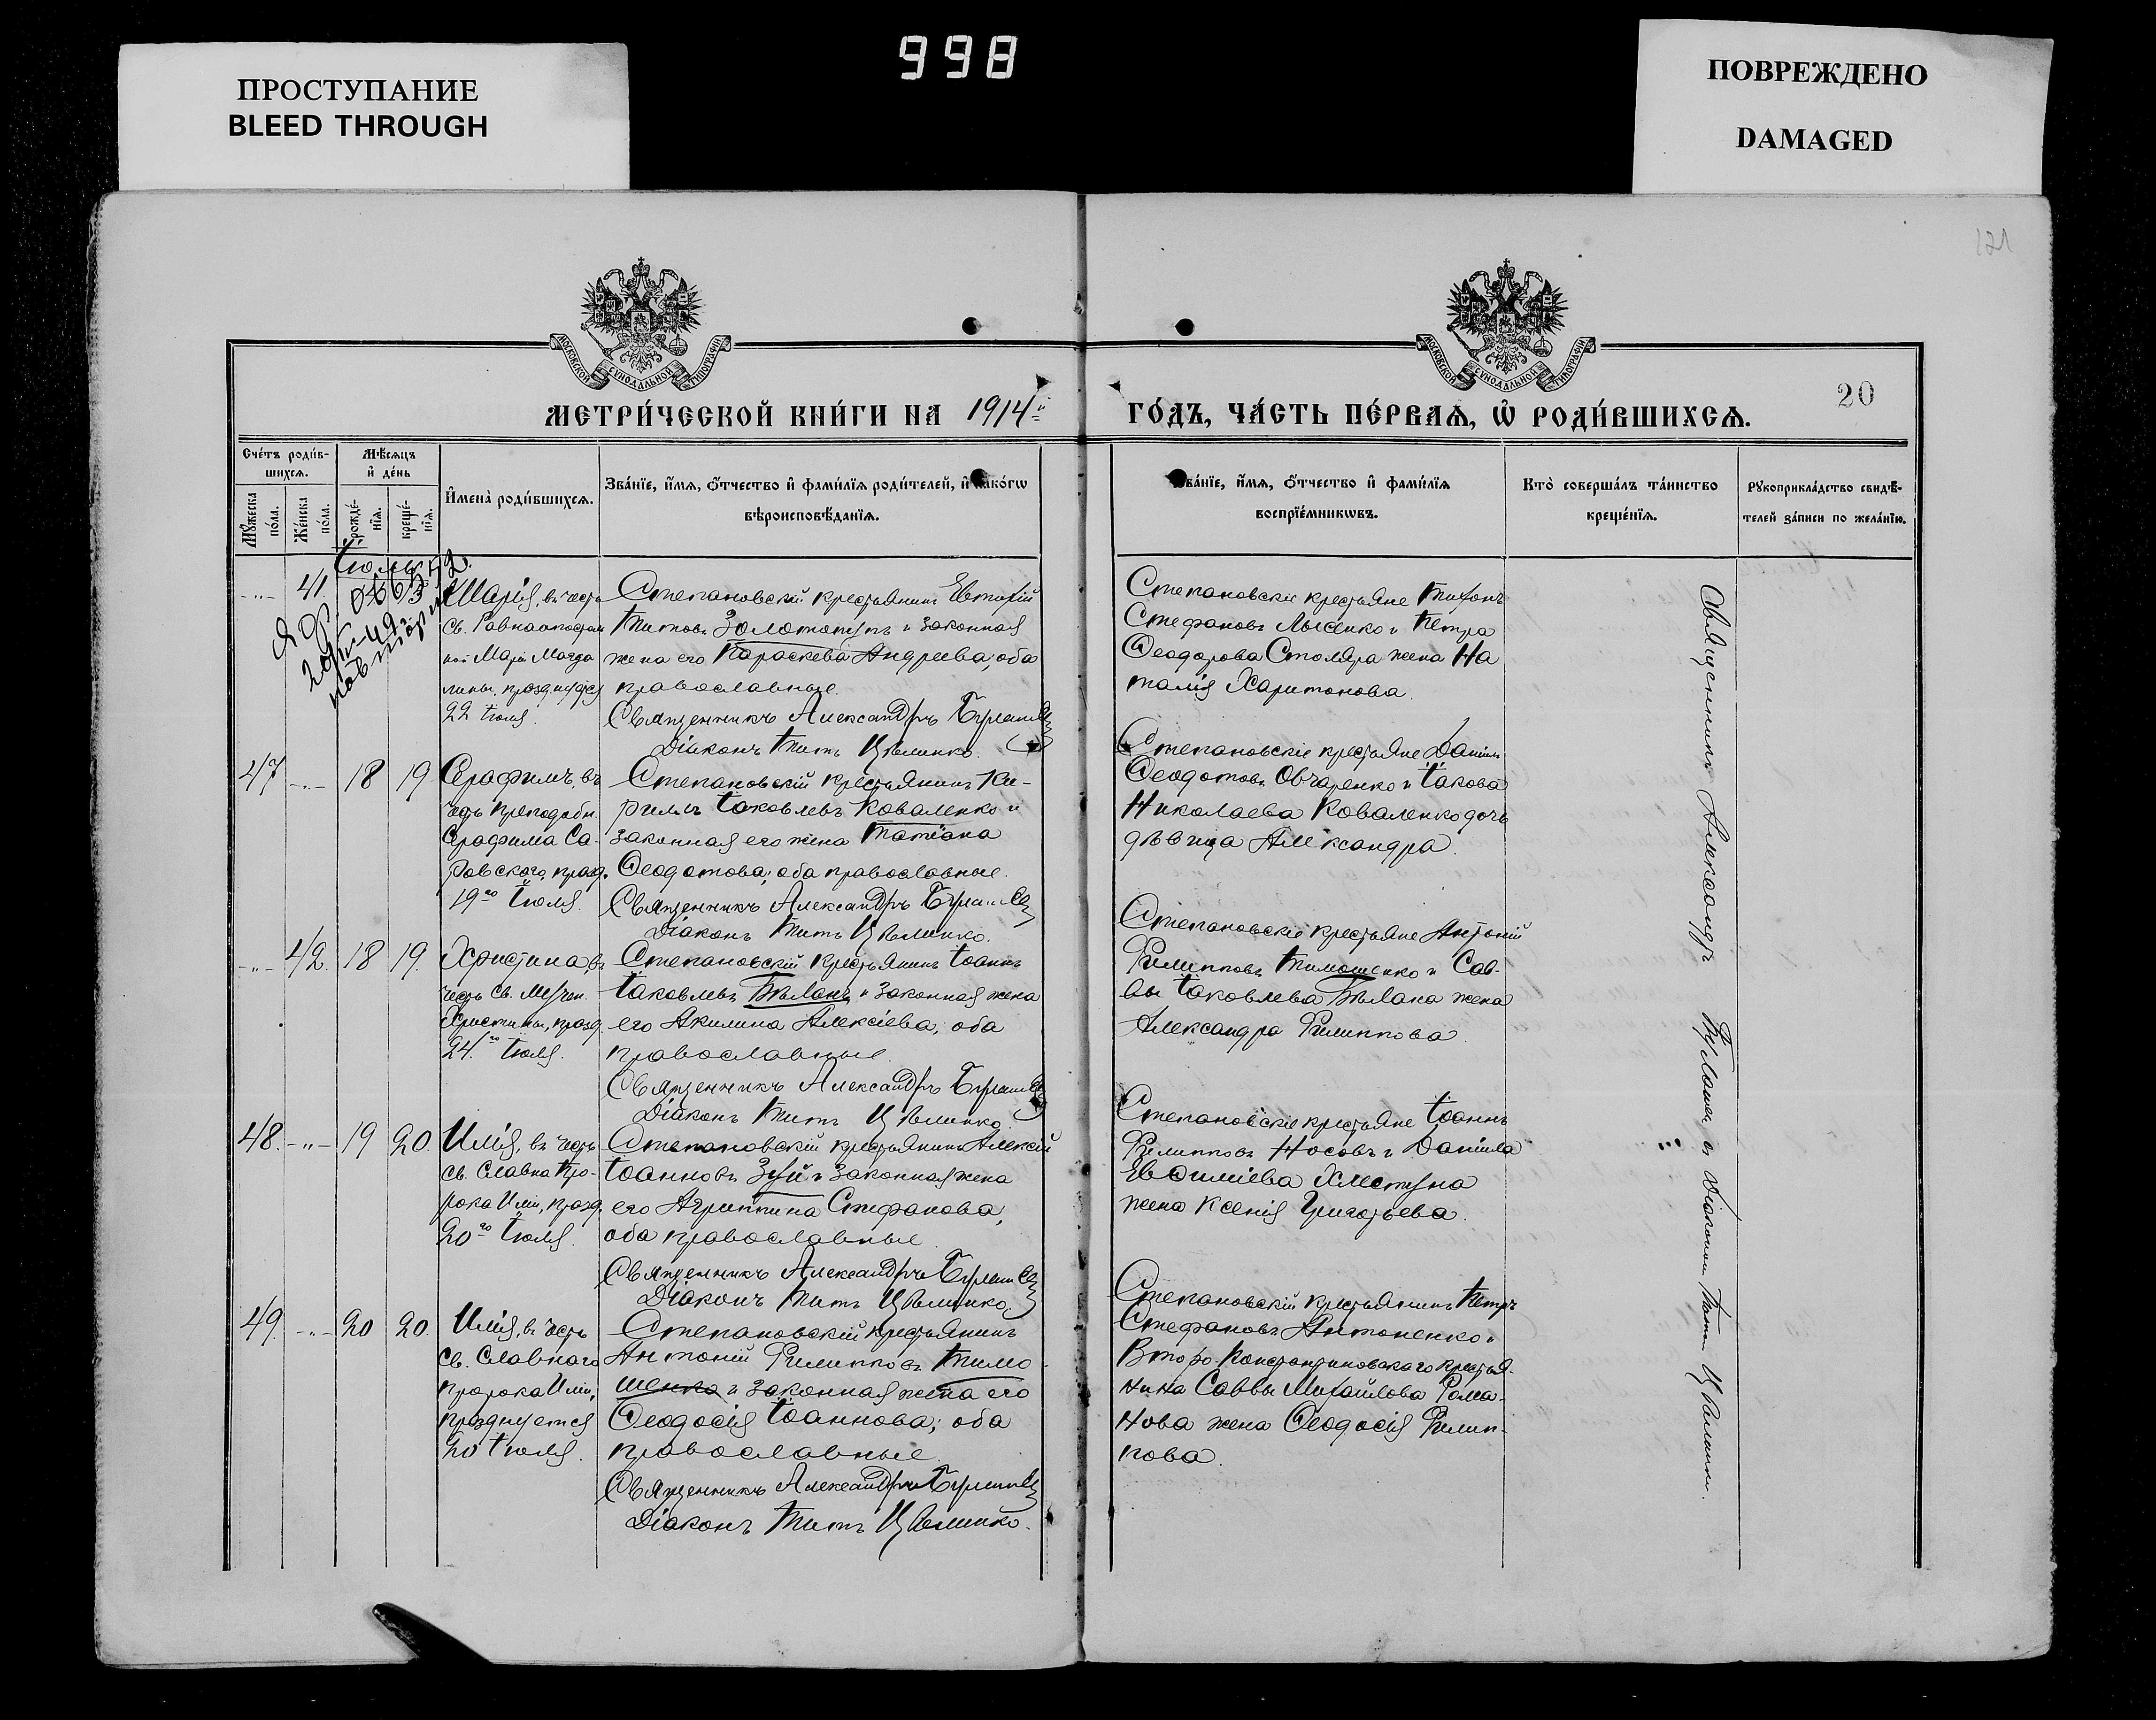 998
ПРОСТУПАНИЕ
BLEED THROUGH
ПОВРЕЖДЕНО
DAMAGED
121
МОСКОВСКОЙ СѴНОДАЛЬНОЙ ТИПОГРАФІИ
МОСКОВСКОЙ СѴНОДАЛЬНОЙ ТИПОГРАФІИ
20
МЕТРИ́ЧЕСКОЙ КНИ́ГИ НА 1914й
ГО́ДЪ, ЧА́СТЬ ПЕ́РВАѦ, Ѡ҆ РОДИ́ВШИХСѦ.
Сче́тъ роди́в-
шихсѧ.
Мѣ́сѧцъ
и҆ де́нь
Мꙋ́жеска
по́ла.
Же́нска
по́ла.
рожде́-
нїѧ.
креще́-
нїѧ.
И҆мена̀ роди́вшихсѧ.
Зва́нїе, и҆́мѧ, ѻ҆́тчество и҆ фами́лїѧ роди́телей, и҆ како́гѡ
вѣроисповѣ́данїѧ.
Зва́нїе, и҆́мѧ, ѻ҆́тчество и҆ фами́лїѧ
воспрїе́мникѡвъ.
Кто̀ соверша́лъ та́инство
креще́нїѧ.
Рꙋкоприкла́дство свидѣ́-
телей за́писи по жела́нїю.
Іюль
41.
Марія, въ честь
Св. Равноапостоль
ной Маріи Магда
лины, празднуется
22 Іюля.
Степановскій крестьянинъ Евтихій
Титовъ Золотопупъ и законная
жена его Параскева Андреева, оба
православные.
Священникъ Александръ
Діаконъ Титъ
Степановскіе крестьяне Тихонъ
Стефановъ Лысенко и Петра
Ѳеодорова Столяра жена На
талія Харитонова.
47 -"- 18 19
Серафимъ, въ
честь преподобн.
Серафима Са-
ровскаго, празд.
19го Іюля.
Степановскій крестьянинъ Ки-
риллъ Іаковлевъ Коваленко и
законная его жена Татіана
Ѳеодотова; оба православные.
Священникъ Александръ
Діаконъ Титъ
Степановскіе крестьяне Даніилъ
Ѳеодотовъ Овчаренко и Іакова
Николаева Коваленко дочь
дѣвица Александра.
-"- 42. 18 19.
Христина, въ
честь Св. Мучен.
Христины, празд.
24го Іюля.
Степановскій крестьянинъ Іоаннъ
Іаковлевъ Бѣланъ и законная жена
его Акилина Алексіева, оба
православные.
Священникъ Александръ
Діаконъ Титъ
Степановскіе крестьяне Антоній
Филипповъ Тимошенко и Сав-
вы Іаковлева Бѣлана жена
Александра Филиппова.
48. -"- 19 20.
Илія, въ честь
Св. Славна Про-
рока Иліи, празд.
20го Іюля.
Степановскій крестьянинъ Алексій
Іоанновъ Зуй и законная жена
его Агриппина Стефанова,
оба православные.
Священникъ Александръ
Діаконъ Титъ
Степановскіе крестьяне Іоаннъ
Филипповъ Носовъ и Даніила
Евѳиміева Хлестуна
жена Ксенія Григорьева.
49. -"- 20 20.
Илія, въ честь
Св. Славнаго
пророка Иліи,
празднуется
20 Іюля.
Степановскій крестьянинъ
Антоній Филипповъ Тимо
шенко и законная жена его
Ѳеодосія Іоаннова; оба
православные.
Священникъ Александръ
Діаконъ Титъ
Степановскій крестьянинъ Петръ
Стефановъ Антоненко и
Второ-Константиновскаго крестья-
нина Саввы Михайлова Рома-
нова жена Ѳеодосія Филип-
пова.
Священникъ Александръ
съ Діакономъ Титомъ